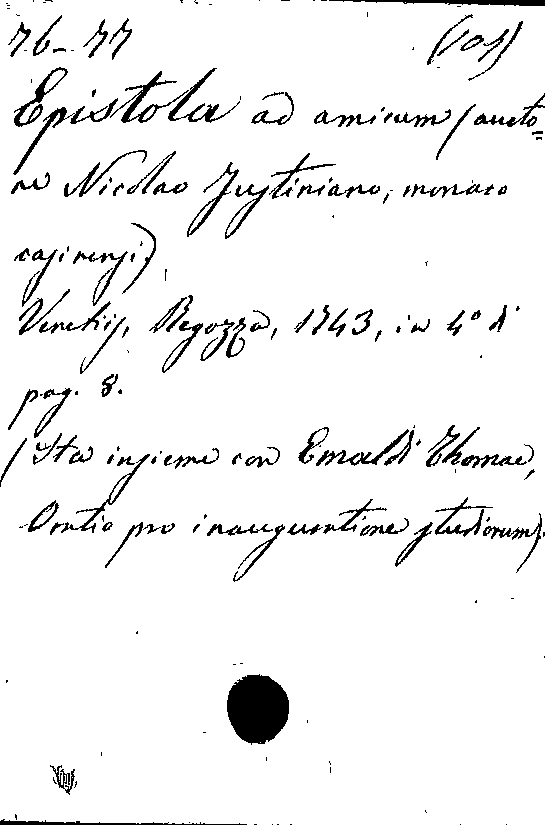 76-77 (101)
Epistola ad amicum (aucto=
re Nicolao Justiniano, monaco
casinensi)
Venetiis, Regozza, 1743, in 4° di
pag. 8.
(Sta insieme con Emaldi Thomae,
Oratio pro inauguratione studiorum).